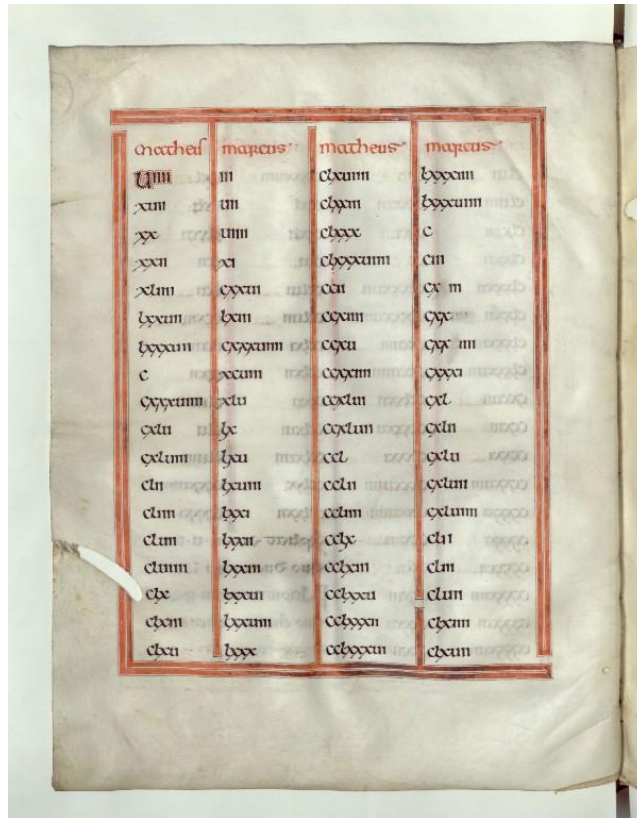 matheus marcus matheus marcus
Uiiii iii clxuiiii lxxxiiii
xuii uii clxxiii lxxxuiiii
xx uiiii clxxx c
xxii xi clxxxuiiii ciii
xliiii cxxui ccii cxiii
lxxuii lxiii ccxiiii cxx
lxxxuii cxxxuiiii ccxxu cxxiiii
c xcuiii ccxxxiiii cxxxi
cxxxuiiii xlu ccxluii cxl
cxlu lx ccxluiii cxlii
cxluiii lxu ccl cxlu
clii lxuiiii cclii cxluii
cliiii lxxi ccliiii cxluiiii
cluii lxxii cclx clii
cluiiii lxxiii cclxiii cliii
clx lxxui cclxxu cluii
clxiii lxxuiii cclxxxii clxiiii
clxu lxxx cclxxxui clxuii